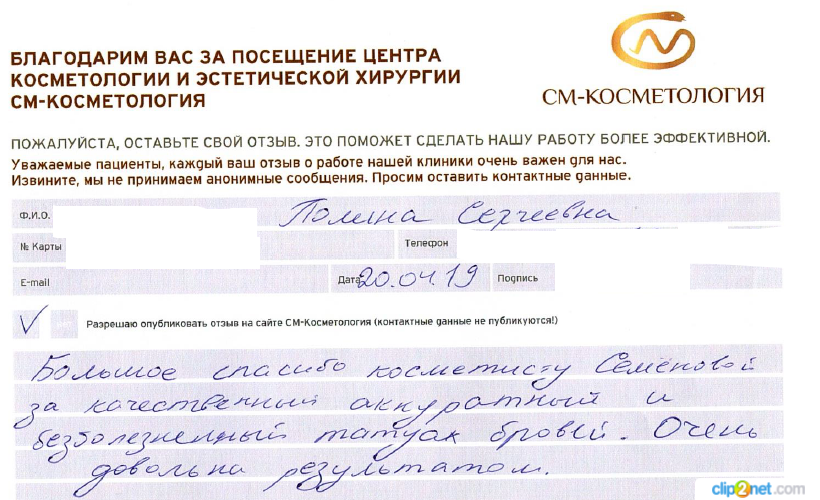 БЛАГОДАРИМ ВАС ЗА ПОСЕЩЕНИЕ ЦЕНТРА
КОСМЕТОЛОГИИ И ЭСТЕТИЧЕСКОЙ ХИРУРГИИ
СМ-КОСМЕТОЛОГИЯ
СМ-КОСМЕТОЛОГИЯ
ПОЖАЛУЙСТА, ОСТАВЬТЕ СВОЙ ОТЗЫВ. ЭТО ПОМОЖЕТ СДЕЛАТЬ НАШУ РАБОТУ БОЛЕЕ ЭФФЕКТИВНОЙ.
Уважаемые пациенты, каждый ваш отзыв о работе нашей клиники очень важен для нас.
Извините, мы не принимаем анонимные сообщения. Просим оставить контактные данные.
Ф.И.О. Полина Сергеевна
№ Карты Телефон
E-mail Дата 20.04.19 Подпись
Разрешаю опубликовать отзыв на сайте СМ-Косметология (контактные данные не публикуются!)
Большое спасибо косметисту Семёновой
за качественный аккуратный и
безболезненный татуаж бровей. Очень
довольна результатом.
clip2net.com